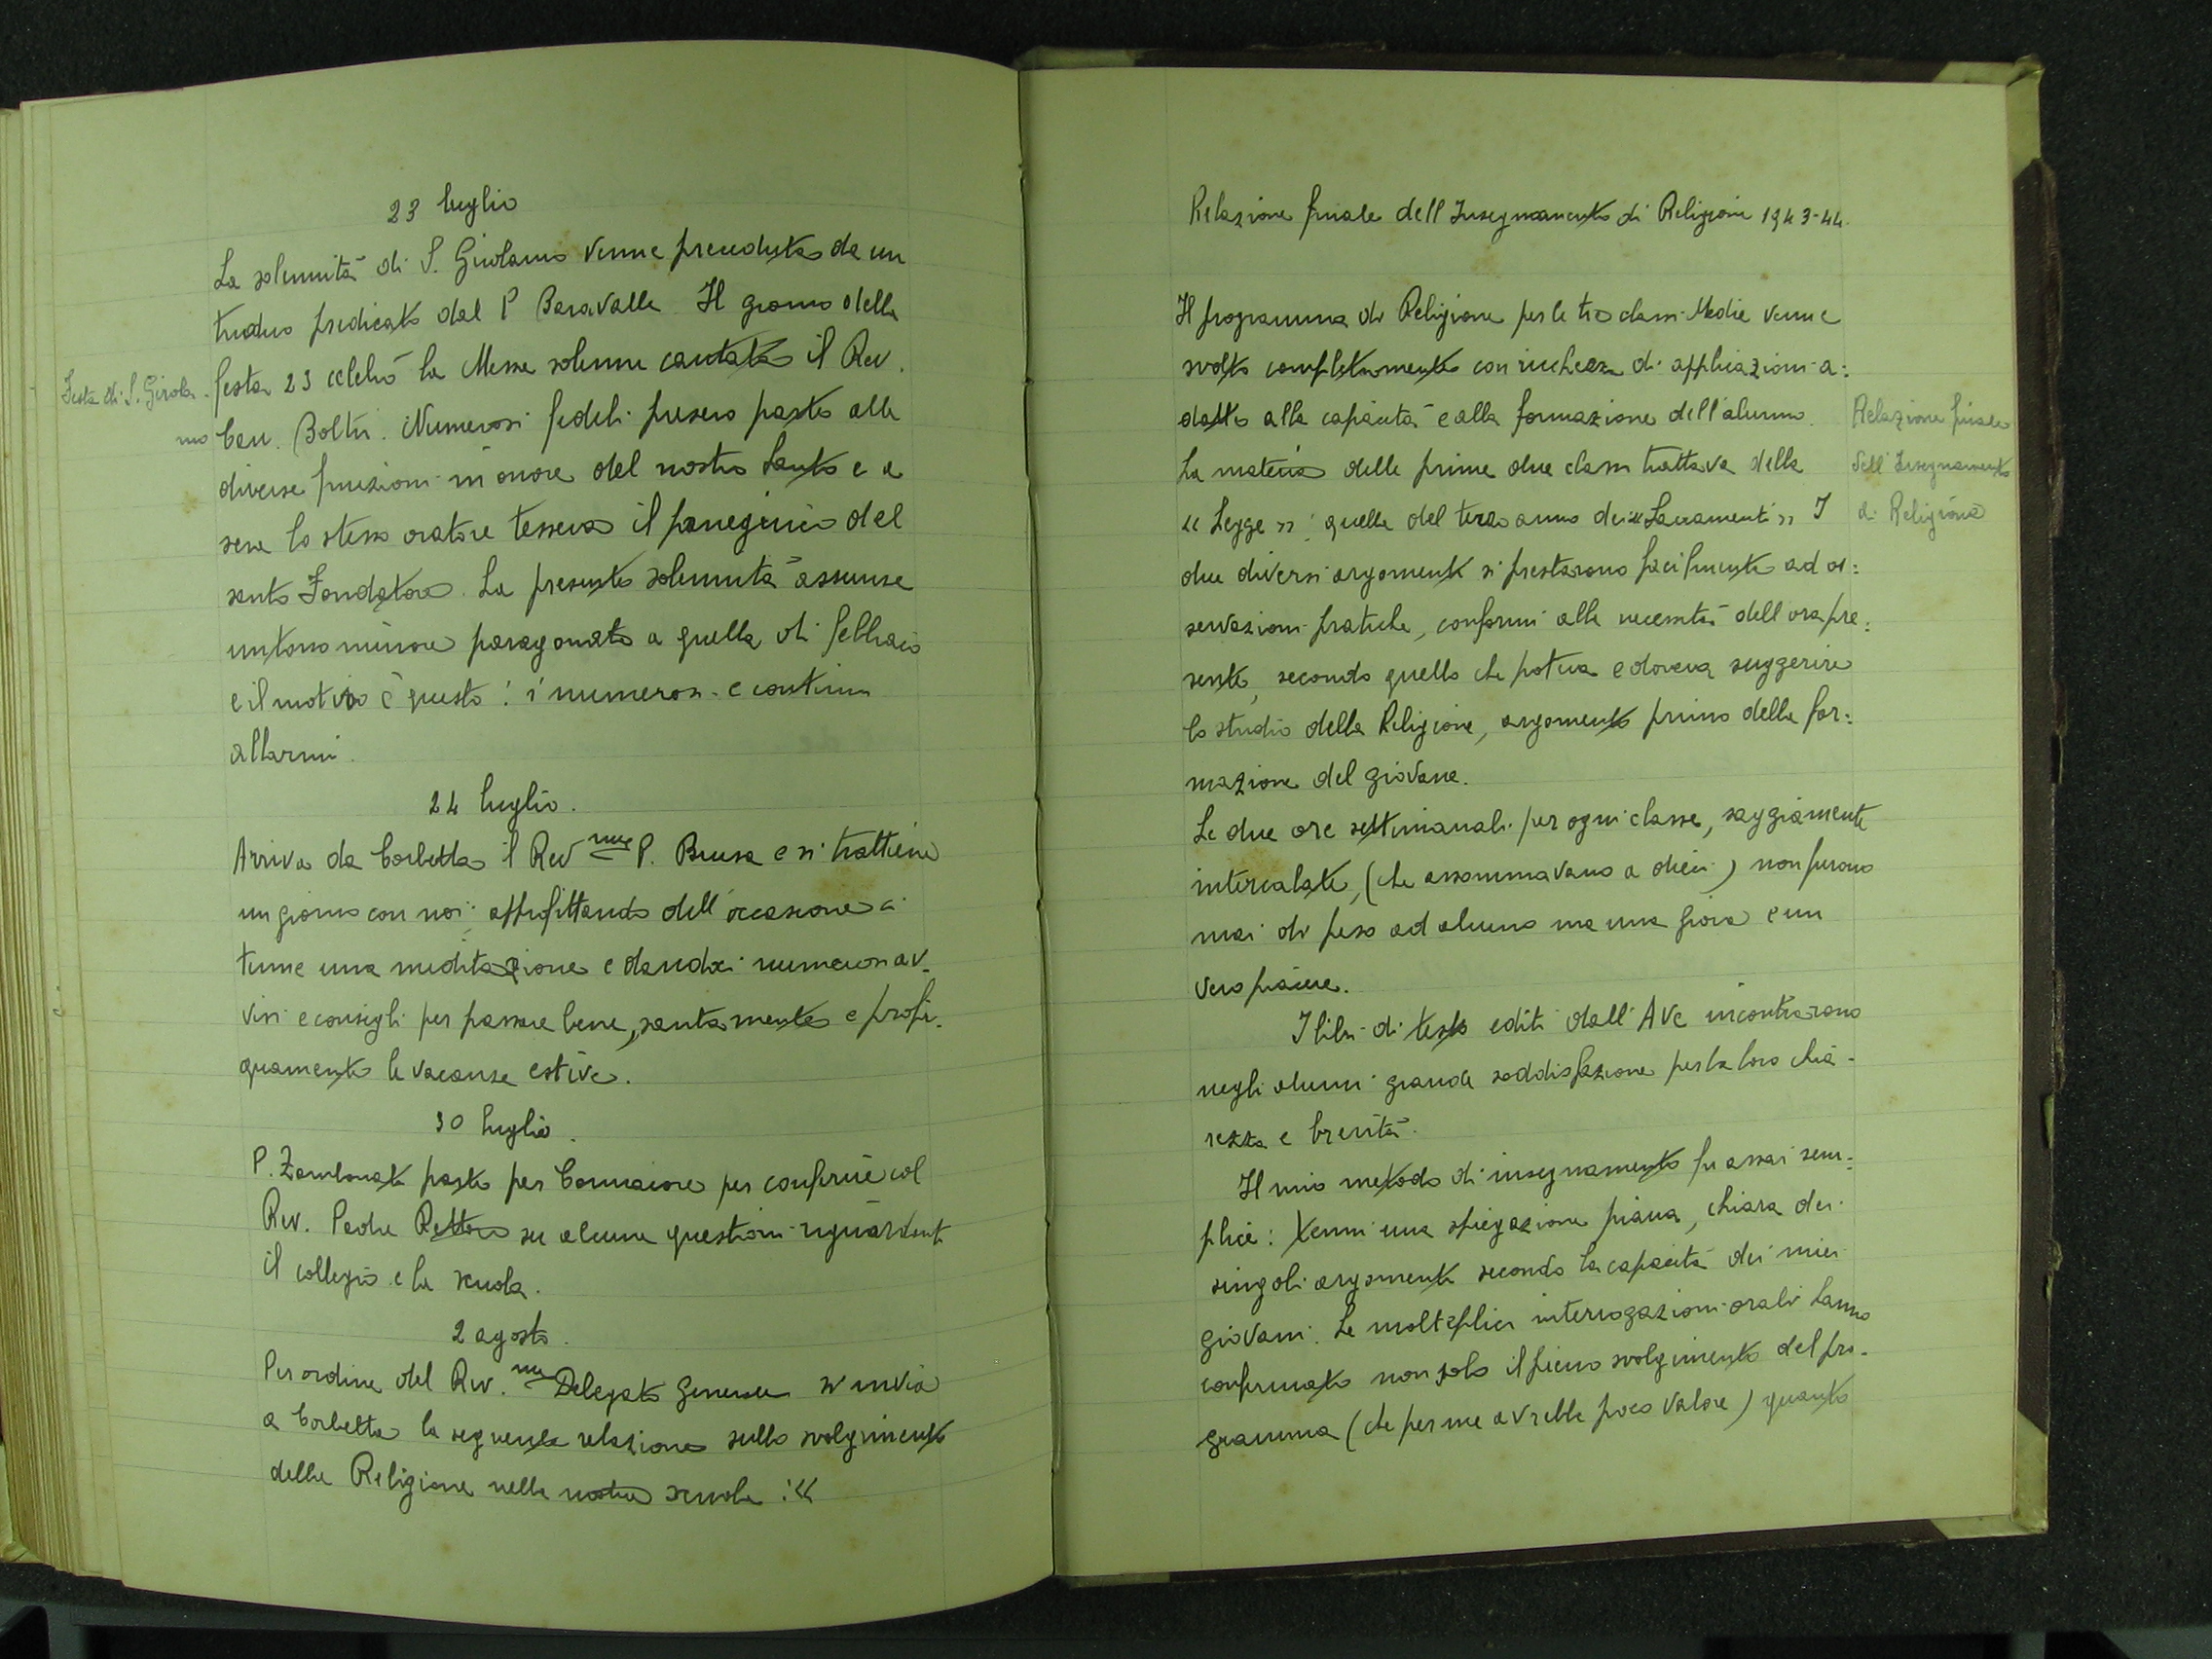 23 luglio
La solennità di S. Girolamo venne preceduta da un
triduo predicato dal P Baravalle Il giorno della
festa 23 celebrò la Messa solenne cantata il Rev.
Festa di S. Girola-
mo
Can. Boltri. Numerosi fedeli presero parte alle
diverse funzioni in onore del nostro Santo e a
sera lo stesso oratore tesseva il panegirico del
santo Fondatore. La presente solennità assunse
un tono minore paragonato a quella di febbraio
e il motivo è questo: i numerosi e continui
allarmi.
24 luglio.
Arriva da Corbetta il Rev.me P. Brusa e si trattiene
un giorno con noi; approfittando dell'occasione ci
tenne una meditazione e dandoci numerosi av-
visi e consigli per passare bene, santamente e profi-
quamente le vacanze estive.
30 luglio.
P. Zambonati parte per Cornaiore per conferire col
Rev. Padre Rettore su alcune questioni riguardanti
il collegio e la scuola.
2 agosto.
Per ordine del Rev.mo Delegato Generale si invia
a Corbetta la seguente relazione sullo svolgimento
della Religione nella nostra scuola :«
Relazione finale dell Insegnamento di Religione 1943-44.
Il programma di Religione per le tre classi Medie venne
svolto completamente con ricchezza di applicazioni a:
datte alla capacità e alla formazione dell'alunno.
La materia delle prime due classi trattava della
« Legge »; quella del terzo anno dei « Sacramenti » I
Relazione finale
dell'Insegnamento
di Religione
due diversi argomenti si prestarono facilmente ad os:
servazioni pratiche, conformi alle necessità dell ora pre:
sente, secondo quello che poteva e doveva suggerire
lo studio della Religione, argomento primo della for:
mazione del giovane.
Le due ore settimanali per ogni classe, saggiamente
intercalate, (che assommavano a dieci) non furono
mai di peso ad alcuno ma una gioia e un
vero piacere.
I libri di testo editi dall'AVE incontrarono
negli alunni grande soddisfazione per la loro chia-
rezza e brevità.
Il mio metodo di insegnamento fu assai sem:
plice: tenni una spiegazione piana, chiara dei
singoli argomenti secondo la capacità dei miei
giovani. Le molteplici interrogazioni orali hanno
confermato non solo il pieno svolgimento del pro-
gramma (che per me avrebbe poco valore) quanto